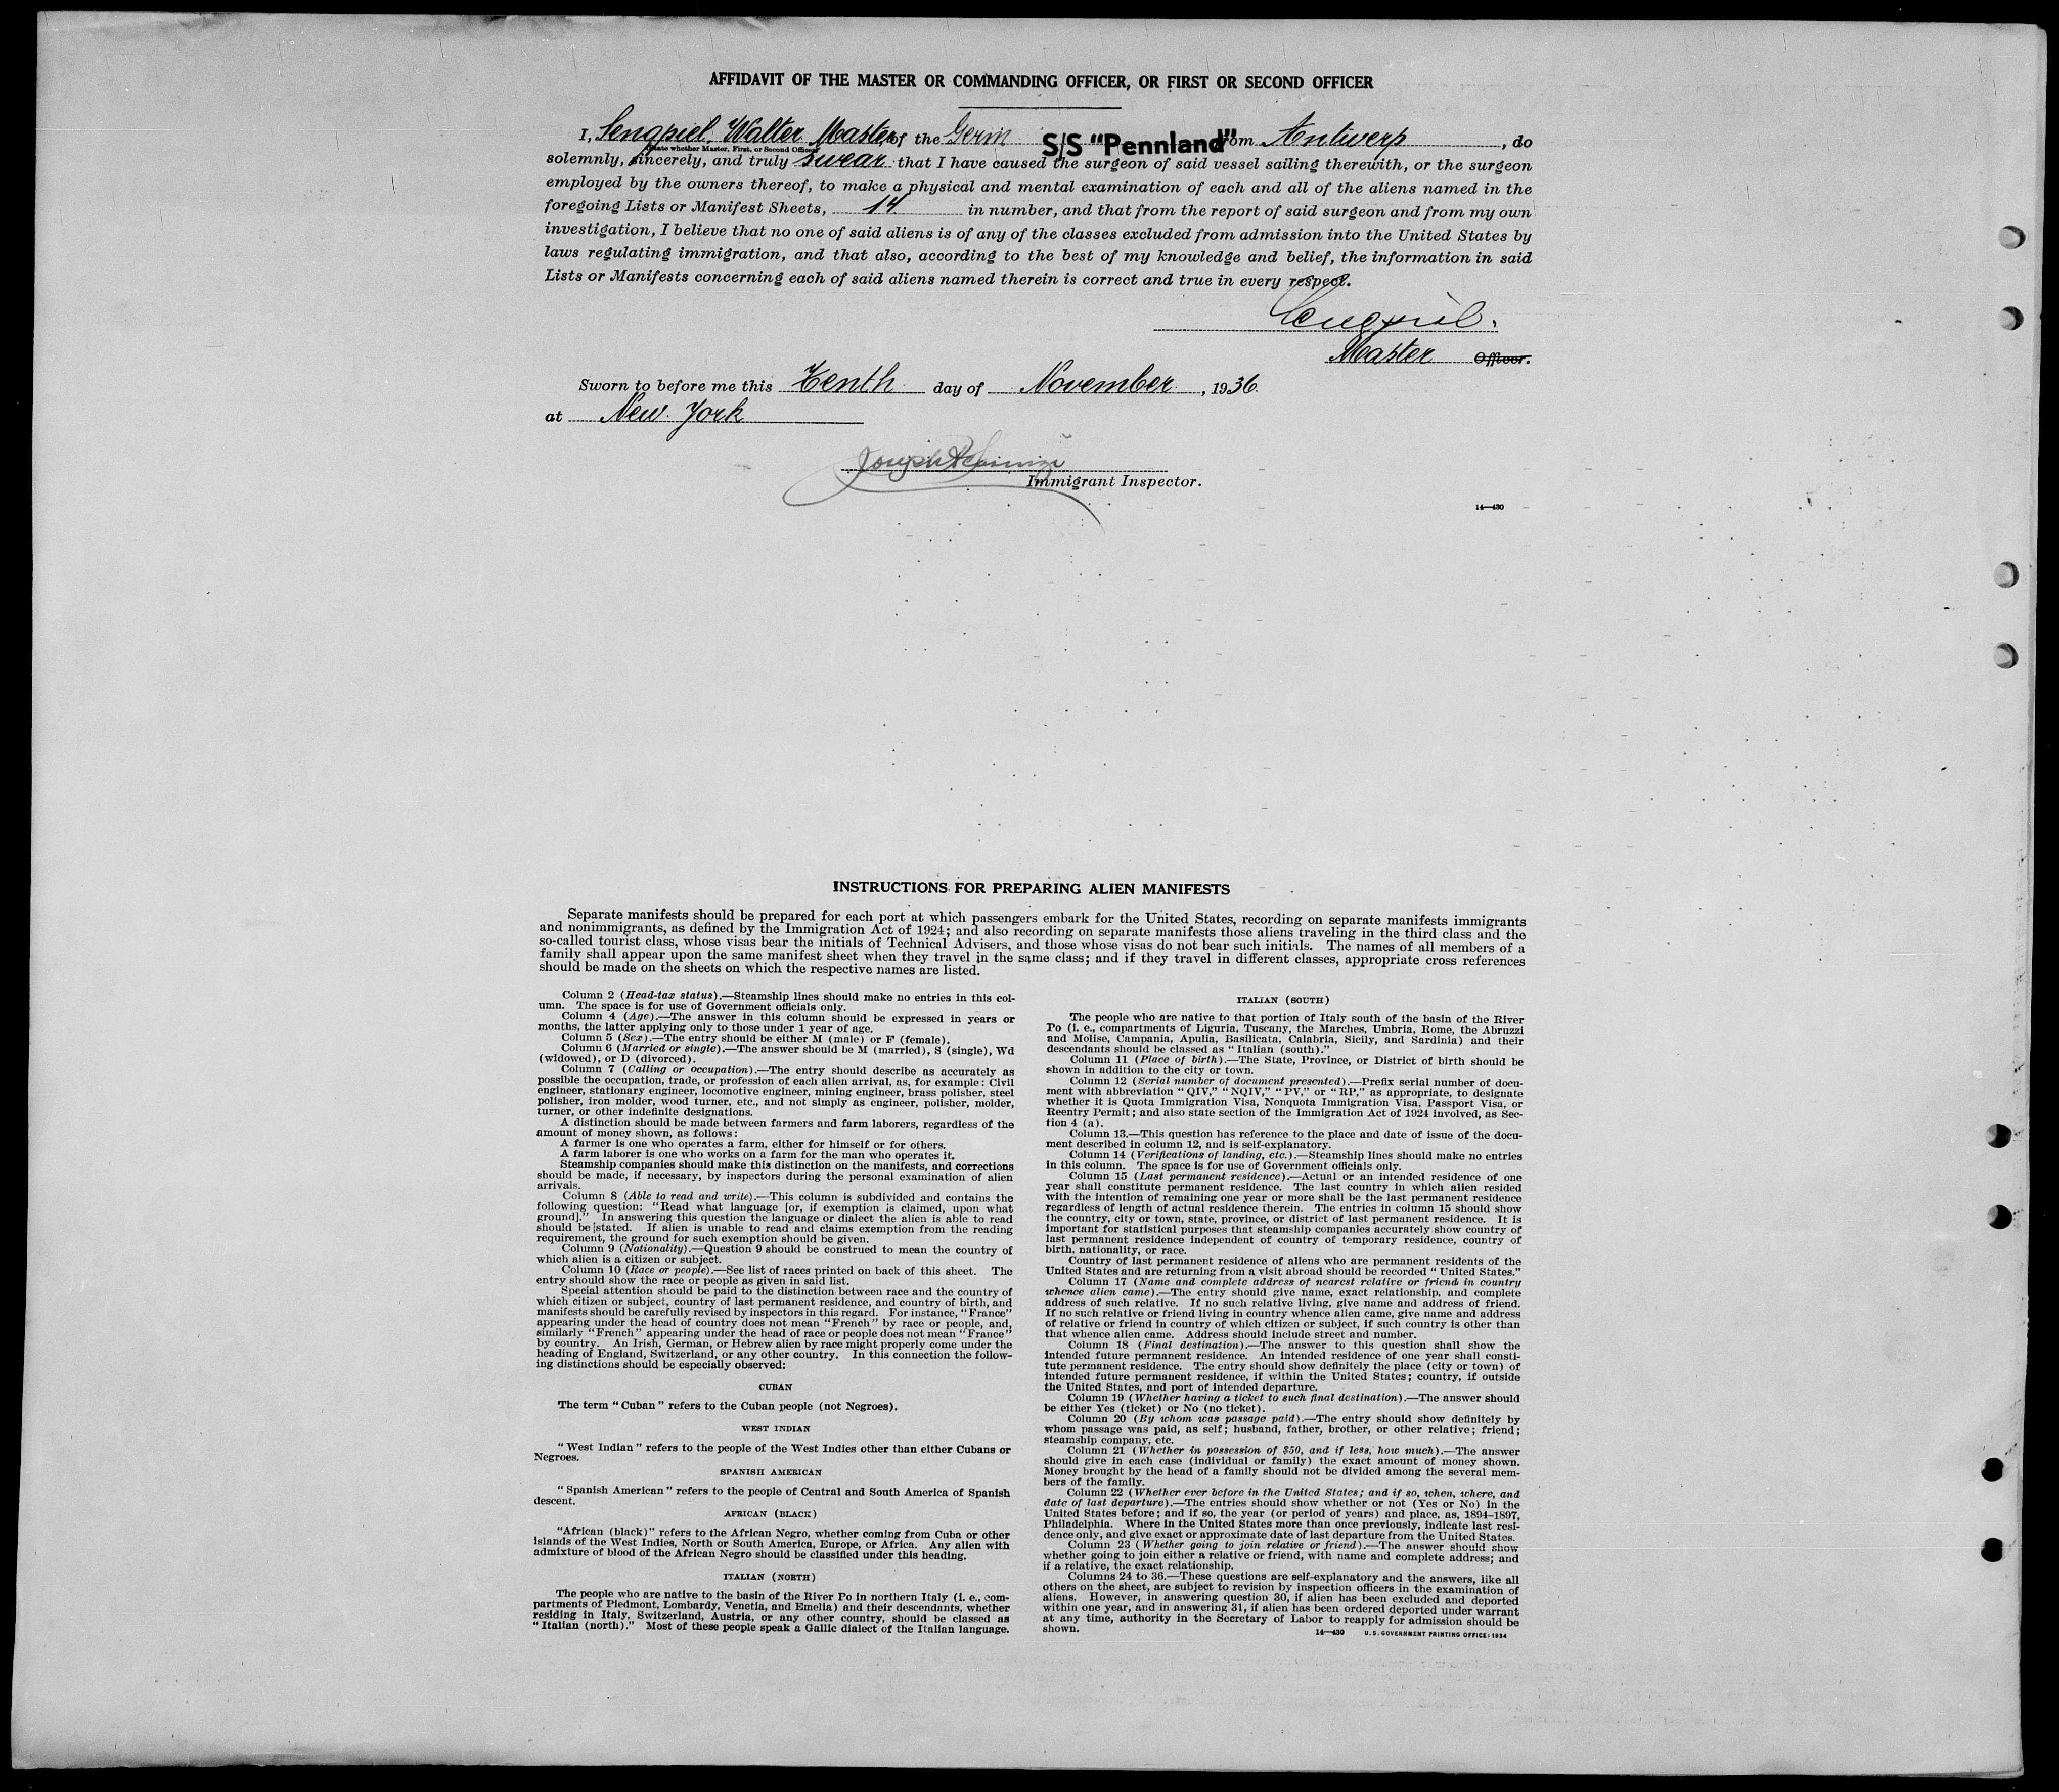 AFFIDAVIT OF THE MASTER OR COMMANDING OFFICER, OR FIRST OR SECOND OFFICER
I, Sengpiel, Walter Master, of the Germ S/S "Pennland" from Antwerp, do
State whether Master, First, or Second Officer
solemnly, sincerely, and truly swear that I have caused the surgeon of said vessel sailing therewith, or the surgeon
employed by the owners thereof, to make a physical and mental examination of each and all of the aliens named in the
foregoing Lists or Manifest Sheets, 14 in number, and that from the report of said surgeon and from my own
investigation, I believe that no one of said aliens is of any of the classes excluded from admission into the United States by
laws regulating immigration, and that also, according to the best of my knowledge and belief, the information in said
Lists or Manifests concerning each of said aliens named therein is correct and true in every respect.
Sengpiel.
Master Officer.
Sworn to before me this Tenth day of November, 1936.
at New York
Joseph
Immigrant Inspector.
14—430
INSTRUCTIONS FOR PREPARING ALIEN MANIFESTS
Separate manifests should be prepared for each port at which passengers embark for the United States, recording on separate manifests immigrants
and nonimmigrants, as defined by the Immigration Act of 1924; and also recording on separate manifests those aliens traveling in the third class and the
so-called tourist class, whose visas bear the initials of Technical Advisers, and those whose visas do not bear such initials. The names of all members of a
family shall appear upon the same manifest sheet when they travel in the same class; and if they travel in different classes, appropriate cross references
should be made on the sheets on which the respective names are listed.
Column 2 (Head-tax status).—Steamship lines should make no entries in this col-
umn. The space is for use of Government officials only.
Column 4 (Age).—The answer in this column should be expressed in years or
months, the latter applying only to those under 1 year of age.
Column 5 (Sex).—The entry should be either M (male) or F (female).
Column 6 (Married or single).—The answer should be M (married), S (single), Wd
(widowed), or D (divorced).
Column 7 (Calling or occupation).—The entry should describe as accurately as
possible the occupation, trade, or profession of each alien arrival, as, for example: Civil
engineer, stationary engineer, locomotive engineer, mining engineer, brass polisher, steel
polisher, iron molder, wood turner, etc., and not simply as engineer, polisher, molder,
turner, or other indefinite designations.
A distinction should be made between farmers and farm laborers, regardless of the
amount of money shown, as follows:
A farmer is one who operates a farm, either for himself or for others.
A farm laborer is one who works on a farm for the man who operates it.
Steamship companies should make this distinction on the manifests, and corrections
should be made, if necessary, by inspectors during the personal examination of alien
arrivals.
Column 8 (Able to read and write).—This column is subdivided and contains the
following question: "Read what language [or, if exemption is claimed, upon what
ground]." In answering this question the language or dialect the alien is able to read
should be stated. If alien is unable to read and claims exemption from the reading
requirement, the ground for such exemption should be given.
Column 9 (Nationality).—Question 9 should be construed to mean the country of
which alien is a citizen or subject.
Column 10 (Race or people).—See list of races printed on back of this sheet. The
entry should show the race or people as given in said list.
Special attention should be paid to the distinction between race and the country of
which citizen or subject, country of last permanent residence, and country of birth, and
manifests should be carefully revised by inspectors in this regard. For instance, "France"
appearing under the head of country does not mean "French" by race or people, and,
similarly "French" appearing under the head of race or people does not mean "France"
by country. An Irish, German, or Hebrew alien by race might properly come under the
heading of England, Switzerland, or any other country. In this connection the follow-
ing distinctions should be especially observed:
CUBAN
The term "Cuban" refers to the Cuban people (not Negroes).
WEST INDIAN
"West Indian" refers to the people of the West Indies other than either Cubans or
Negroes.
SPANISH AMERICAN
"Spanish American" refers to the people of Central and South America of Spanish
descent.
AFRICAN (BLACK)
"African (black)" refers to the African Negro, whether coming from Cuba or other
islands of the West Indies, North or South America, Europe, or Africa. Any alien with
admixture of blood of the African Negro should be classified under this heading.
ITALIAN (NORTH)
The people who are native to the basin of the River Po in northern Italy (i. e., com-
partments of Piedmont, Lombardy, Venetia, and Emelia) and their descendants, whether
residing in Italy, Switzerland, Austria, or any other country, should be classed as
"Italian (north)." Most of these people speak a Gallic dialect of the Italian language.
ITALIAN (SOUTH)
The people who are native to that portion of Italy south of the basin of the River
Po (i. e., compartments of Liguria, Tuscany, the Marches, Umbria, Rome, the Abruzzi
and Molise, Campania, Apulia, Basilicata, Calabria, Sicily, and Sardinia) and their
descendants should be classed as "Italian (south)."
Column 11 (Place of birth).—The State, Province, or District of birth should be
shown in addition to the city or town.
Column 12 (Serial number of document presented).—Prefix serial number of docu-
ment with abbreviation "QIV," "NQIV," "PV," or "RP," as appropriate, to designate
whether it is Quota Immigration Visa, Nonquota Immigration Visa, Passport Visa, or
Reentry Permit; and also state section of the Immigration Act of 1924 involved, as Sec-
tion 4 (a).
Column 13.—This question has reference to the place and date of issue of the docu-
ment described in column 12, and is self-explanatory.
Column 14 (Verifications of landing, etc.).—Steamship lines should make no entries
in this column. The space is for use of Government officials only.
Column 15 (Last permanent residence).—Actual or an intended residence of one
year shall constitute permanent residence. The last country in which alien resided
with the intention of remaining one year or more shall be the last permanent residence
regardless of length of actual residence therein. The entries in column 15 should show
the country, city or town, state, province, or district of last permanent residence. It is
important for statistical purposes that steamship companies accurately show country of
last permanent residence independent of country of temporary residence, country of
birth, nationality, or race.
Country of last permanent residence of aliens who are permanent residents of the
United States and are returning from a visit abroad should be recorded "United States."
Column 17 (Name and complete address of nearest relative or friend in country
whence alien came).—The entry should give name, exact relationship, and complete
address of such relative. If no such relative living, give name and address of friend.
If no such relative or friend living in country whence alien came, give name and address
of relative or friend in country of which citizen or subject, if such country is other than
that whence alien came. Address should include street and number.
Column 18 (Final destination).—The answer to this question shall show the
intended future permanent residence. An intended residence of one year shall consti-
tute permanent residence. The entry should show definitely the place (city or town) of
intended future permanent residence, if within the United States; country, if outside
the United States, and port of intended departure.
Column 19 (Whether having a ticket to such final destination).—The answer should
be either Yes (ticket) or No (no ticket).
Column 20 (By whom was passage paid).—The entry should show definitely by
whom passage was paid, as self; husband, father, brother, or other relative; friend;
steamship company, etc.
Column 21 (Whether in possession of $50, and if less, how much).—The answer
should give in each case (individual or family) the exact amount of money shown.
Money brought by the head of a family should not be divided among the several mem-
bers of the family.
Column 22 (Whether ever before in the United States; and if so, when, where, and
date of last departure).—The entries should show whether or not (Yes or No) in the
United States before; and if so, the year (or period of years) and place, as, 1894–1897,
Philadelphia. Where in the United States more than once previously, indicate last resi-
dence only, and give exact or approximate date of last departure from the United States.
Column 23 (Whether going to join relative or friend).—The answer should show
whether going to join either a relative or friend, with name and complete address; and
if a relative, the exact relationship.
Columns 24 to 36.—These questions are self-explanatory and the answers, like all
others on the sheet, are subject to revision by inspection officers in the examination of
aliens. However, in answering question 30, if alien has been excluded and deported
within one year, and in answering 31, if alien has been ordered deported under warrant
at any time, authority in the Secretary of Labor to reapply for admission should be
shown.
14—430 U. S. GOVERNMENT PRINTING OFFICE: 1934